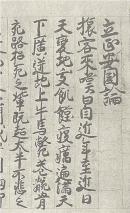 立正安國論
旅客来嘆曰自近年至近日
天變地夭飢饉疫癘遍滿天
下廣迸地上牛馬斃巷骸骨
充路招死之輩既超大半不悲